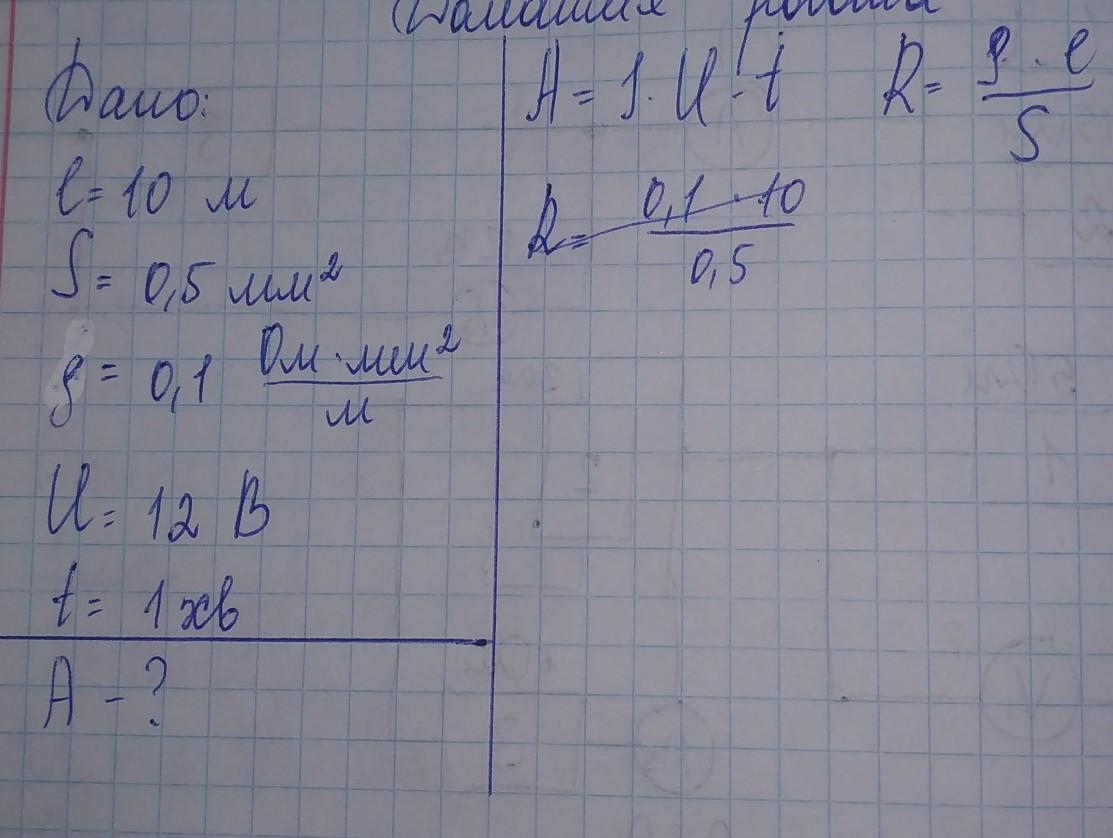 Домашня робота
Дано:
l = 10 м
S = 0,5 мм²
ρ = 0,1 Ом·мм²/м
U = 12 В
t = 1 хв
A - ?
A = I · U · t R = ρ · l / S
R = 0,1 · 10 / 0,5